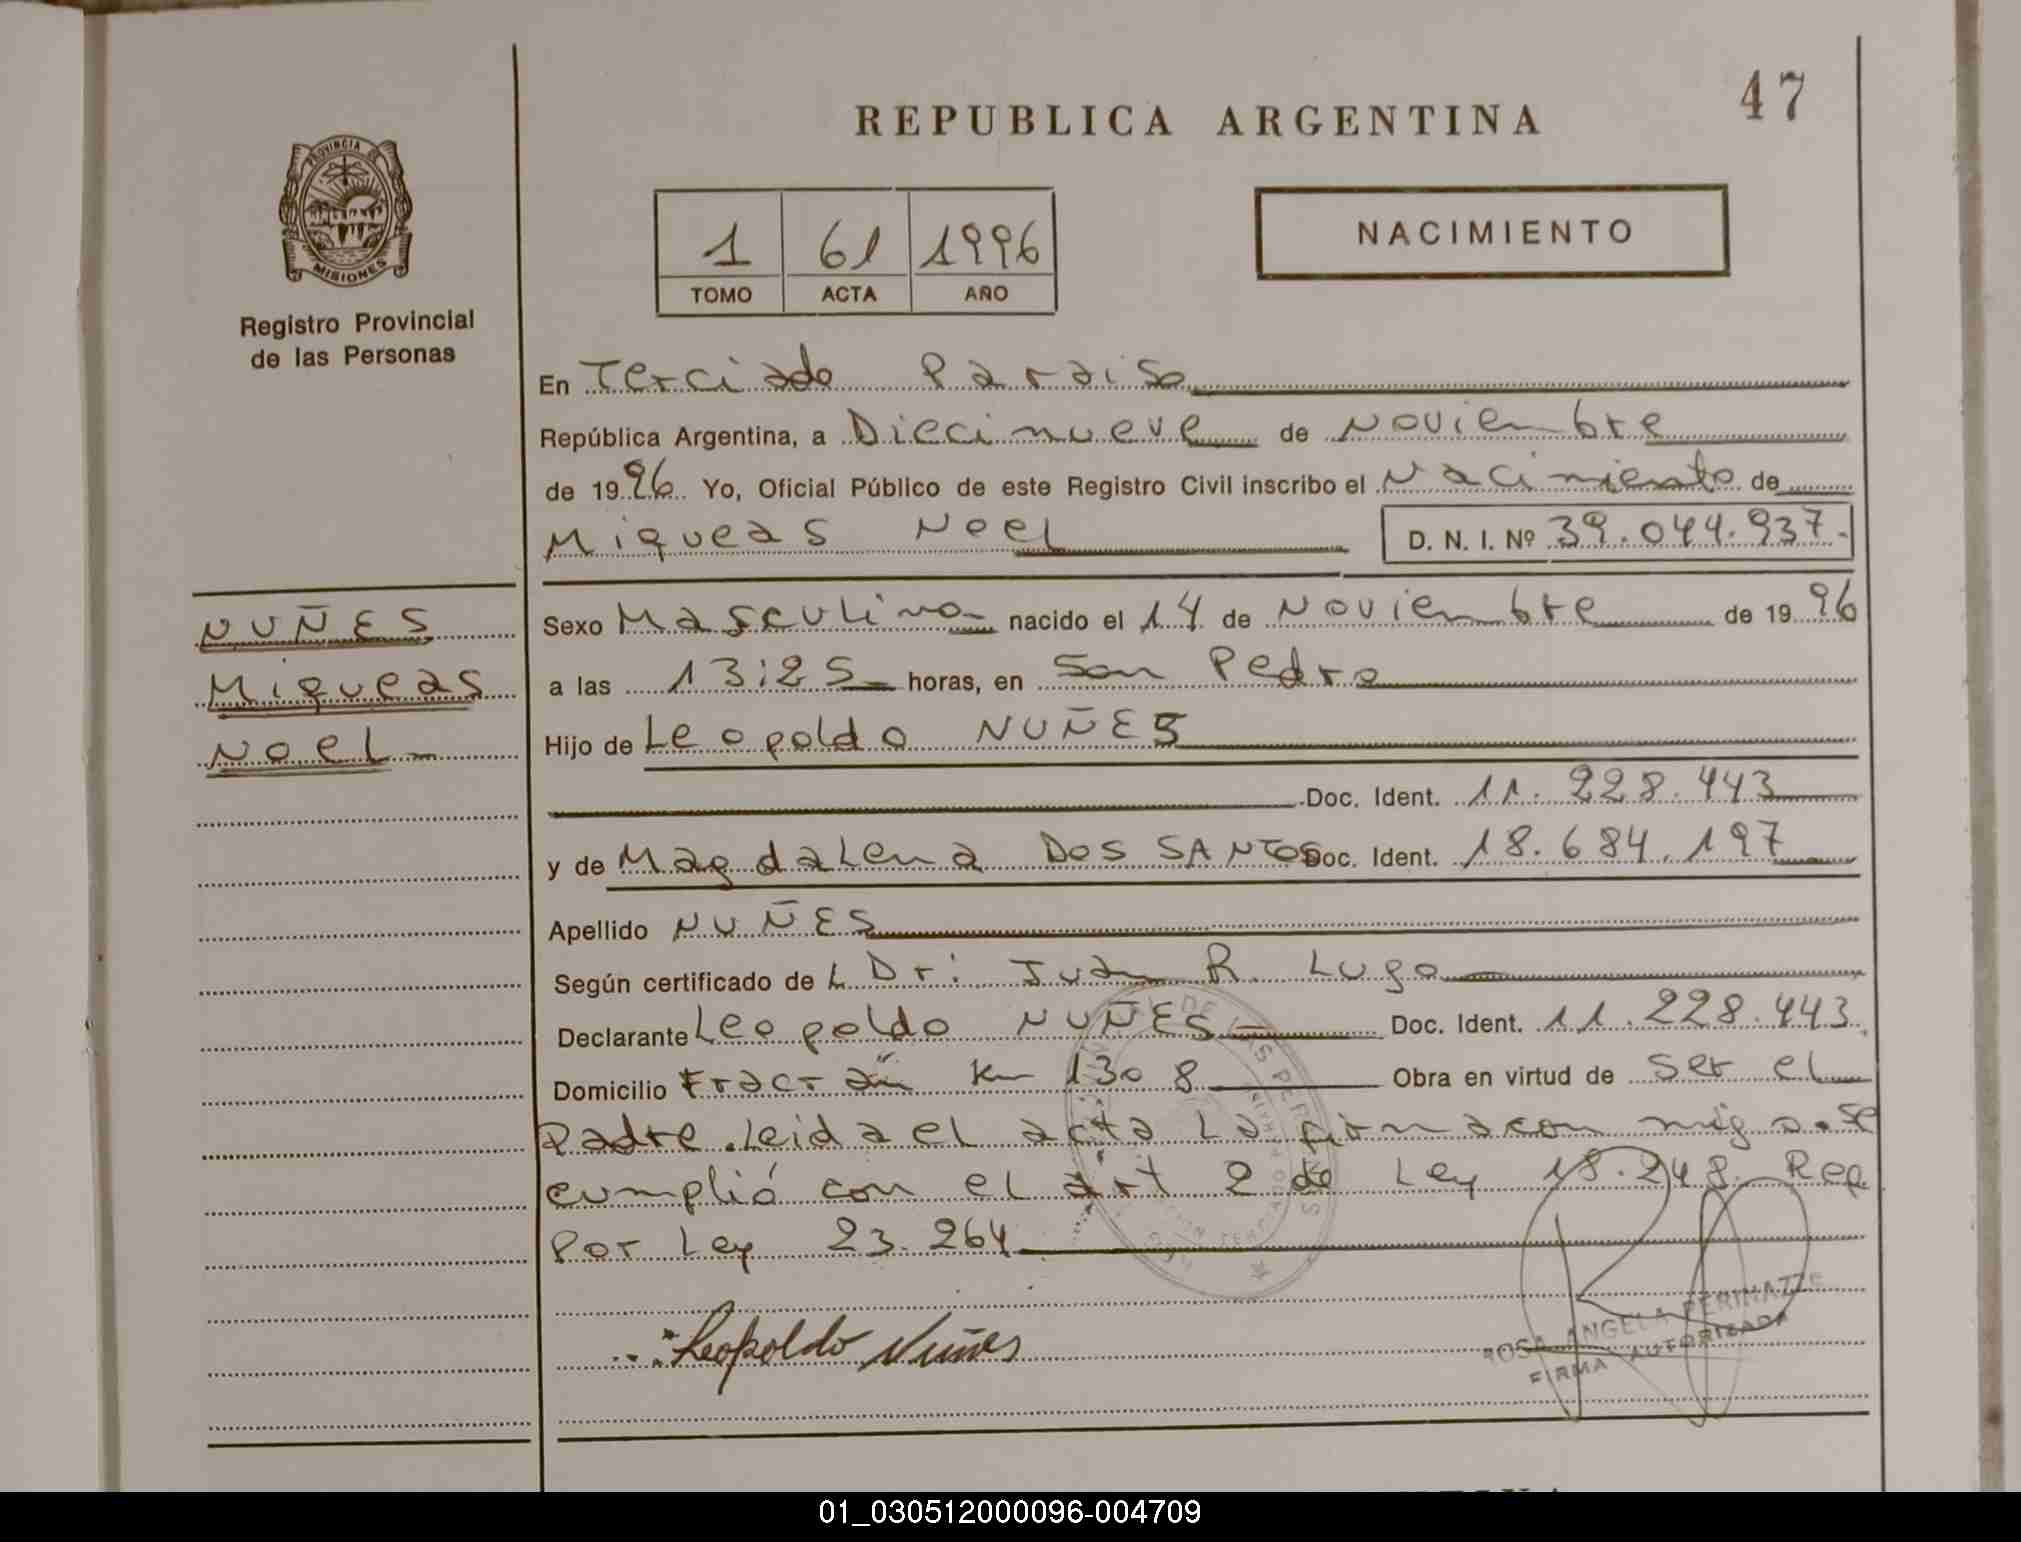 47
REPUBLICA ARGENTINA
PROVINCIA DE
MISIONES
Registro Provincial
de las Personas
1 61 1996
TOMO ACTA AÑO
NACIMIENTO
En Terciado Paraiso
República Argentina, a Diecinueve de Noviembre
de 1996 Yo, Oficial Público de este Registro Civil inscribo el Nacimiento de
Miqueas Noel D. N. I. Nº 39.044.937.-
NUÑES
Miqueas
Noel-
Sexo Masculino nacido el 14 de Noviembre de 1996
a las 13:25 horas, en San Pedro
Hijo de Leopoldo NUÑES
Doc. Ident. 11.228.443
y de Magdalena DOS SANTOS Doc. Ident. 18.684.197
Apellido NUÑES
Según certificado de L Dr: Juan R. Lugo
Declarante Leopoldo NUÑES- Doc. Ident. 11.228.443
Domicilio Fracrán Km 1308 Obra en virtud de ser el
Padre. Leida el acta La firma con migo. Se
cumplió con el art 2 de Ley 18.248. Rep
Por Ley 23.264
Leopoldo Nuñes
ROSA ANGELA PERINAZZE
FIRMA AUTORIZADA
01_030512000096-004709